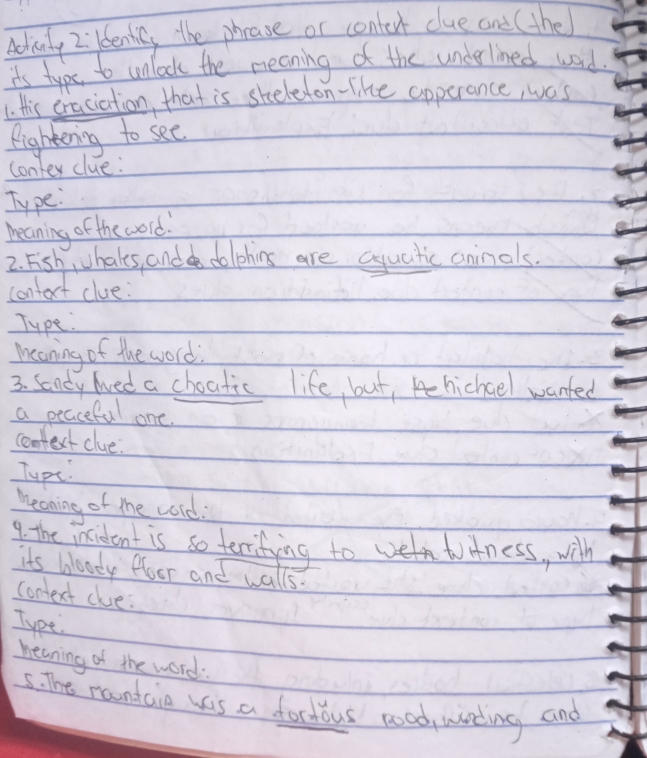 Activity 2: Identify the phrase or context clue and (the)
its type to unlock the meaning of the underlined word.
1. His eraciation, that is skeleton-like apperance, was
fightening to see.
Contex clue:
Type:
Meaning of the word:
2. Fish, whales, and dolphins are aquatic animals.
Context clue:
Type:
Meaning of the word:
3. Sandy lived a choatic life, but, Michael wanted
a peaceful one.
Context clue:
Type:
Meaning of the word:
4. The incident is so terrifying to witness, with
its bloody floor and walls.
Context clue:
Type:
Meaning of the word:
5. The mountain was a tortous road, winding and